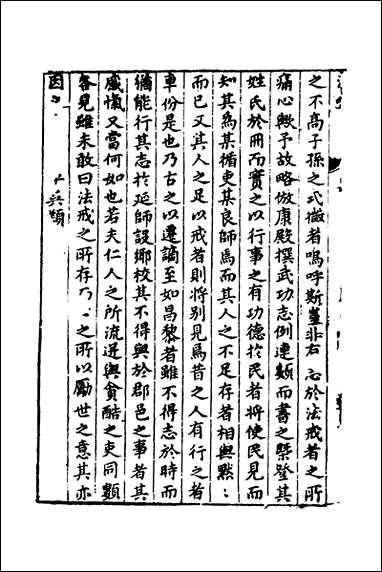 之不高子孫之式微者嗚呼斯豈非右 志於法戒者之所
痛心歟予故略倣康殿撰武功志例連類而書之槩登其
姓氏於冊而實之以行事之有功德於民者將使民見而
知其為某循吏某良師焉而其人之不足存者相與默〻
而已又其人之足以戒者則將別見焉昔之人有行之者
車份是也乃古之以遷謫至如昌黎者雖不得志於時而
猶能行其志於延師設鄉校其不得與於郡邑之事者其
感愾又當何如也若夫仁人之所流逆與貪酷之吏同類
各見雖未敢曰法戒之所存 之所以勵世之意其亦
因 兵類